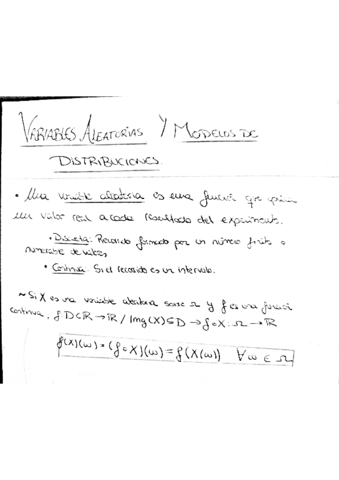 VARIABLES ALEATORIAS Y MODELOS DE
DISTRIBUCIONES.
• Una variable aleatoria es una función que
un valor real a cada resultado del experimento.
• Discreta: Recorrido formado por un número finito o
numerable de valores
• Continua: Si el recorrido es un intervalo.
~ Si X es una variable aleatoria sobre Ω y f es una función
continua, f D⊂ℝ → ℝ / Img(X)⊆D → f∘X: Ω → ℝ
f(X)(ω) = (f∘X)(ω) = f(X(ω)) ∀ω ∈ Ω